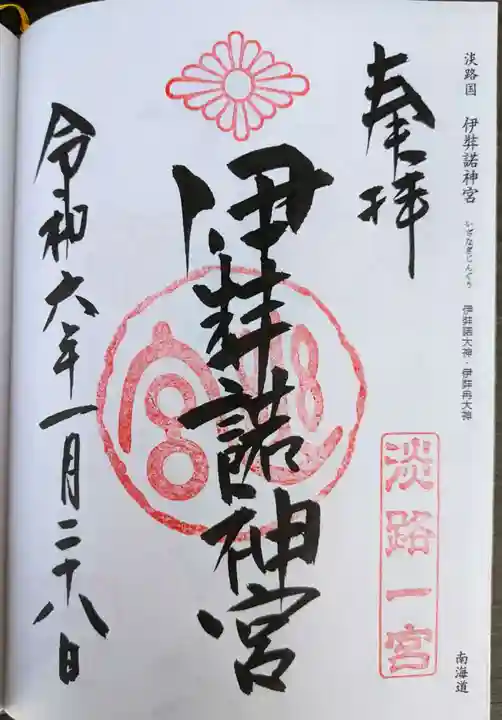 淡路国 伊弉諾神宮 いざなぎじんぐう 伊弉諾大神・伊弉冉大神
南海道
奉拝
淡路一宮
伊弉諾神宮
令和六年一月二十八日